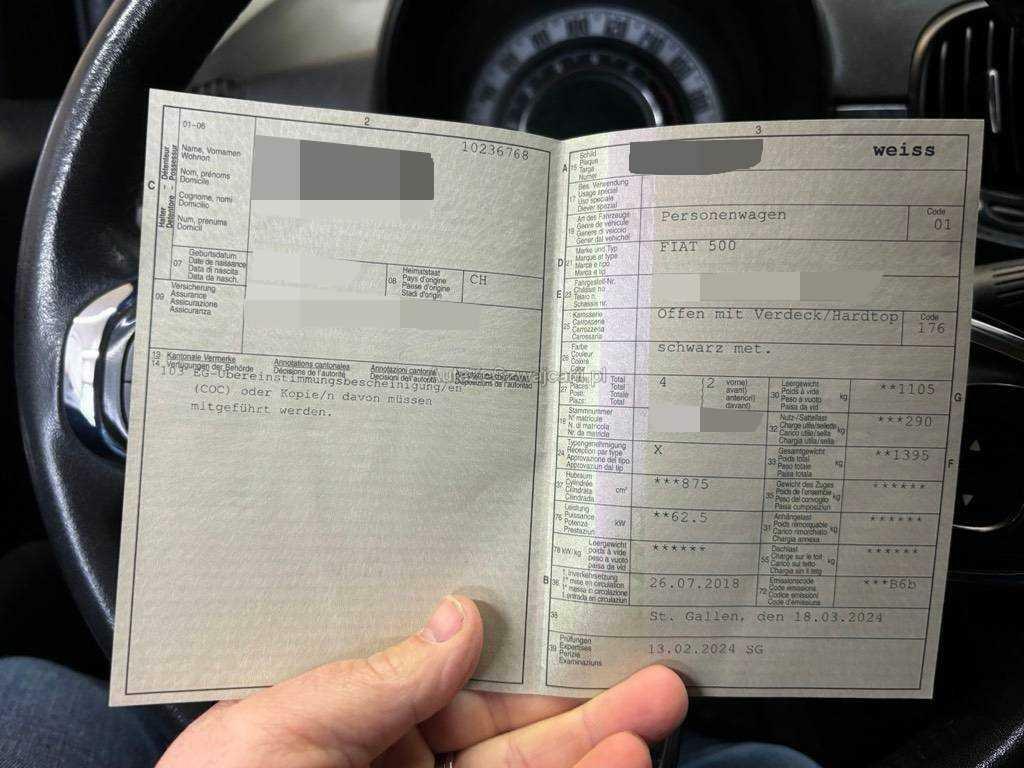 2
10236768
01-06
C
Halter Détenteur
Detentore Possessur
Name, Vornamen
Wohnort
Nom, prénoms
Domicile
Cognome, nomi
Domicilio
Num, prenums
Domicil
07
Geburtsdatum
Date de naissance
Data di nascita
Data da nasch.
08
Heimatstaat
Pays d'origine
Paese d'origine
Stadi d'origin
CH
09
Versicherung
Assurance
Assicurazione
Assicuranza
13 Kantonale Vermerke Annotations cantonales Annotazioni cantonali
14 Verfügungen der Behörde Décisions de l'autorité Decisioni dell'autorità Disposiziuns da l'autoritad
103 EG-Übereinstimmungsbescheinigung/en
(COC) oder Kopie/n davon müssen
mitgeführt werden.
3
A
15
Schild
Plaque
Targa
Numer
weiss
17
Bes. Verwendung
Usage spécial
Uso speciale
Diever spezial
19
Art des Fahrzeugs
Genre de véhicule
Genere di veicolo
Gener dal vehichel
Personenwagen
Code
01
D
21
Marke und Typ
Marque et type
Marca e tipo
Marca e tip
FIAT 500
E
23
Fahrgestell-Nr.
Châssis no
Telaio n.
Schassis nr.
25
Karosserie
Carrosserie
Carrozzeria
Carossaria
Offen mit Verdeck/Hardtop
Code
176
26
Farbe
Couleur
Colore
Color
schwarz met.
27
Total
Total
Totale
Total
4
(2
vorne)
avant)
anteriori)
davant)
30
Leergewicht
Poids à vide
Peso a vuoto
Paisa da vid
kg
**1105
G
18
Stammnummer
N° matricule
N. di matricola
Nr. da matricla
32
Nutz-/Sattellast
Charge utile/sellette
Carico utile/sella
Chargia utila/sella
kg
***290
24
Typengenehmigung
Réception par type
Approvazione del tipo
Approvaziun dal tip
X
33
Gesamtgewicht
Poids total
Peso totale
Paisa totala
kg
**1395
F
37
Hubraum
Cylindrée
Cilindrata
Cilindrada
cm³
***875
35
Gewicht des Zuges
Poids de l'ensemble
Peso del convoglio
Paisa cumposiziun
kg
******
76
Leistung
Puissance
Potenza
Prestaziun
kW
**62.5
31
Anhängelast
Poids remorquable
Carico rimorchiato
Chargia annexa
kg
******
78
kW/kg
Leergewicht
poids à vide
peso a vuoto
paisa da vid
******
55
Dachlast
Charge sur le toit
Carico sul tetto
Chargia sin il tetg
kg
******
B
36
1. Inverkehrsetzung
1re mise en circulation
1a messa in circolazione
1. entrada en circulaziun
26.07.2018
72
Emissionscode
Code émissions
Codice emissioni
Code d'emissiuns
***B6b
38
St. Gallen, den 18.03.2024
39
Prüfungen
Expertises
Perizie
Examinaziuns
13.02.2024 SG